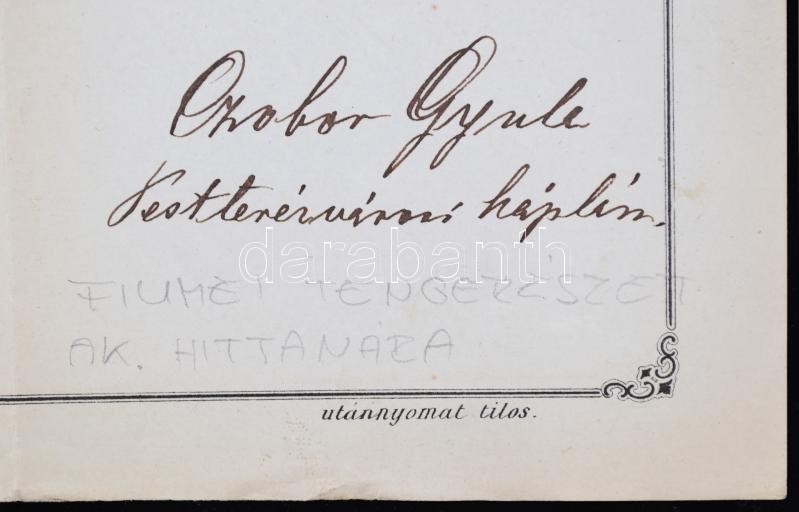 Czobor Gyula
Pestterézvárosi káplán.
darabanth
FIUMEI TENGERÉSZETI
AK. HITTANÁRA
utánnyomat tilos.